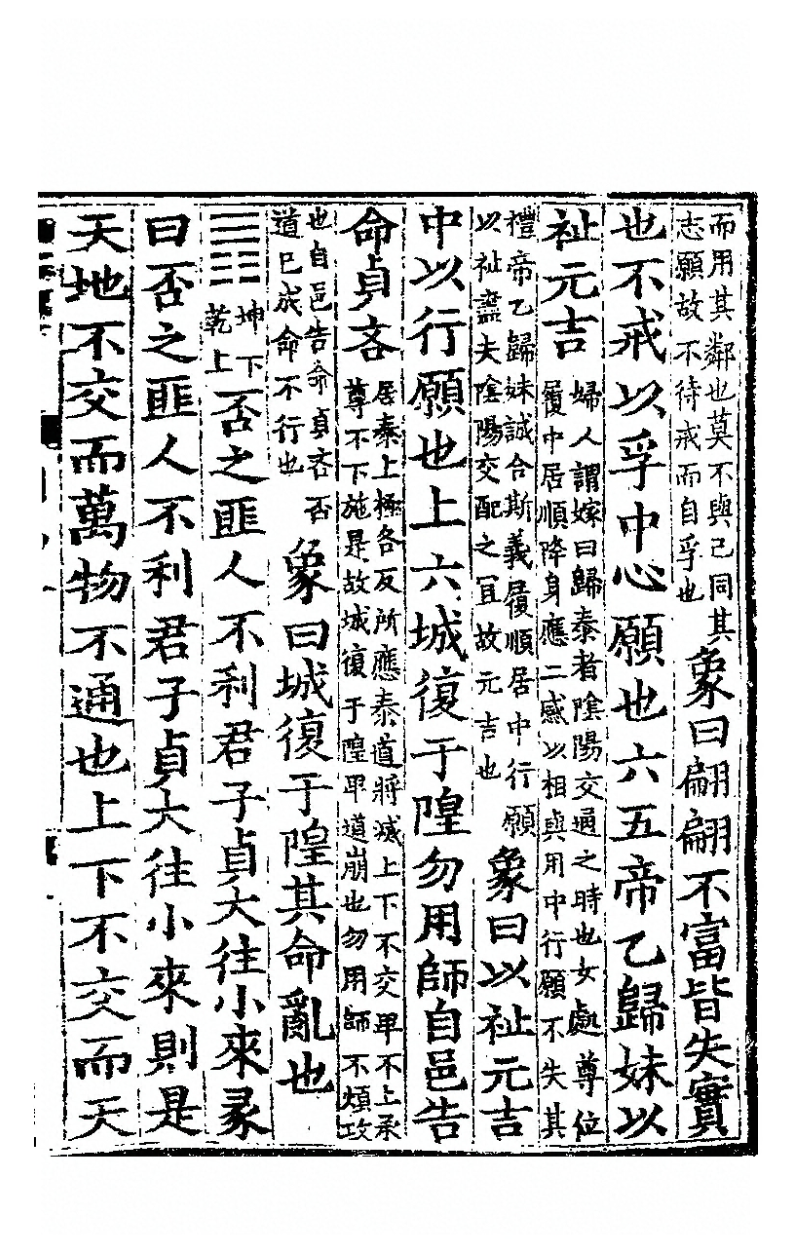 而用其鄰也莫不與己同其
志願故不待戒而自孚也
象曰翩翩不富皆失實
也不戒以孚中心願也六五帝乙歸妹以
祉元吉
婦人謂嫁曰歸泰者隂陽交通之時也女處尊位
履中居順降身應二感以相與用中行願不失其
禮帝乙歸妹誠合斯義履順居中行願
以祉盡夫隂陽交配之宜故元吉也
象曰以祉元吉
中以行願也上六城復于隍勿用師自邑告
命貞吝
居泰上極各反所應泰道將滅上下不交卑不上承
尊不下施是故城復于隍卑道崩也勿用師不煩攻
也自邑告命貞吝否
道已成命不行也
象曰城復于隍其命亂也
䷋
坤下
乾上
否之匪人不利君子貞大往小來彖
曰否之匪人不利君子貞大往小來則是
天地不交而萬物不通也上下不交而天